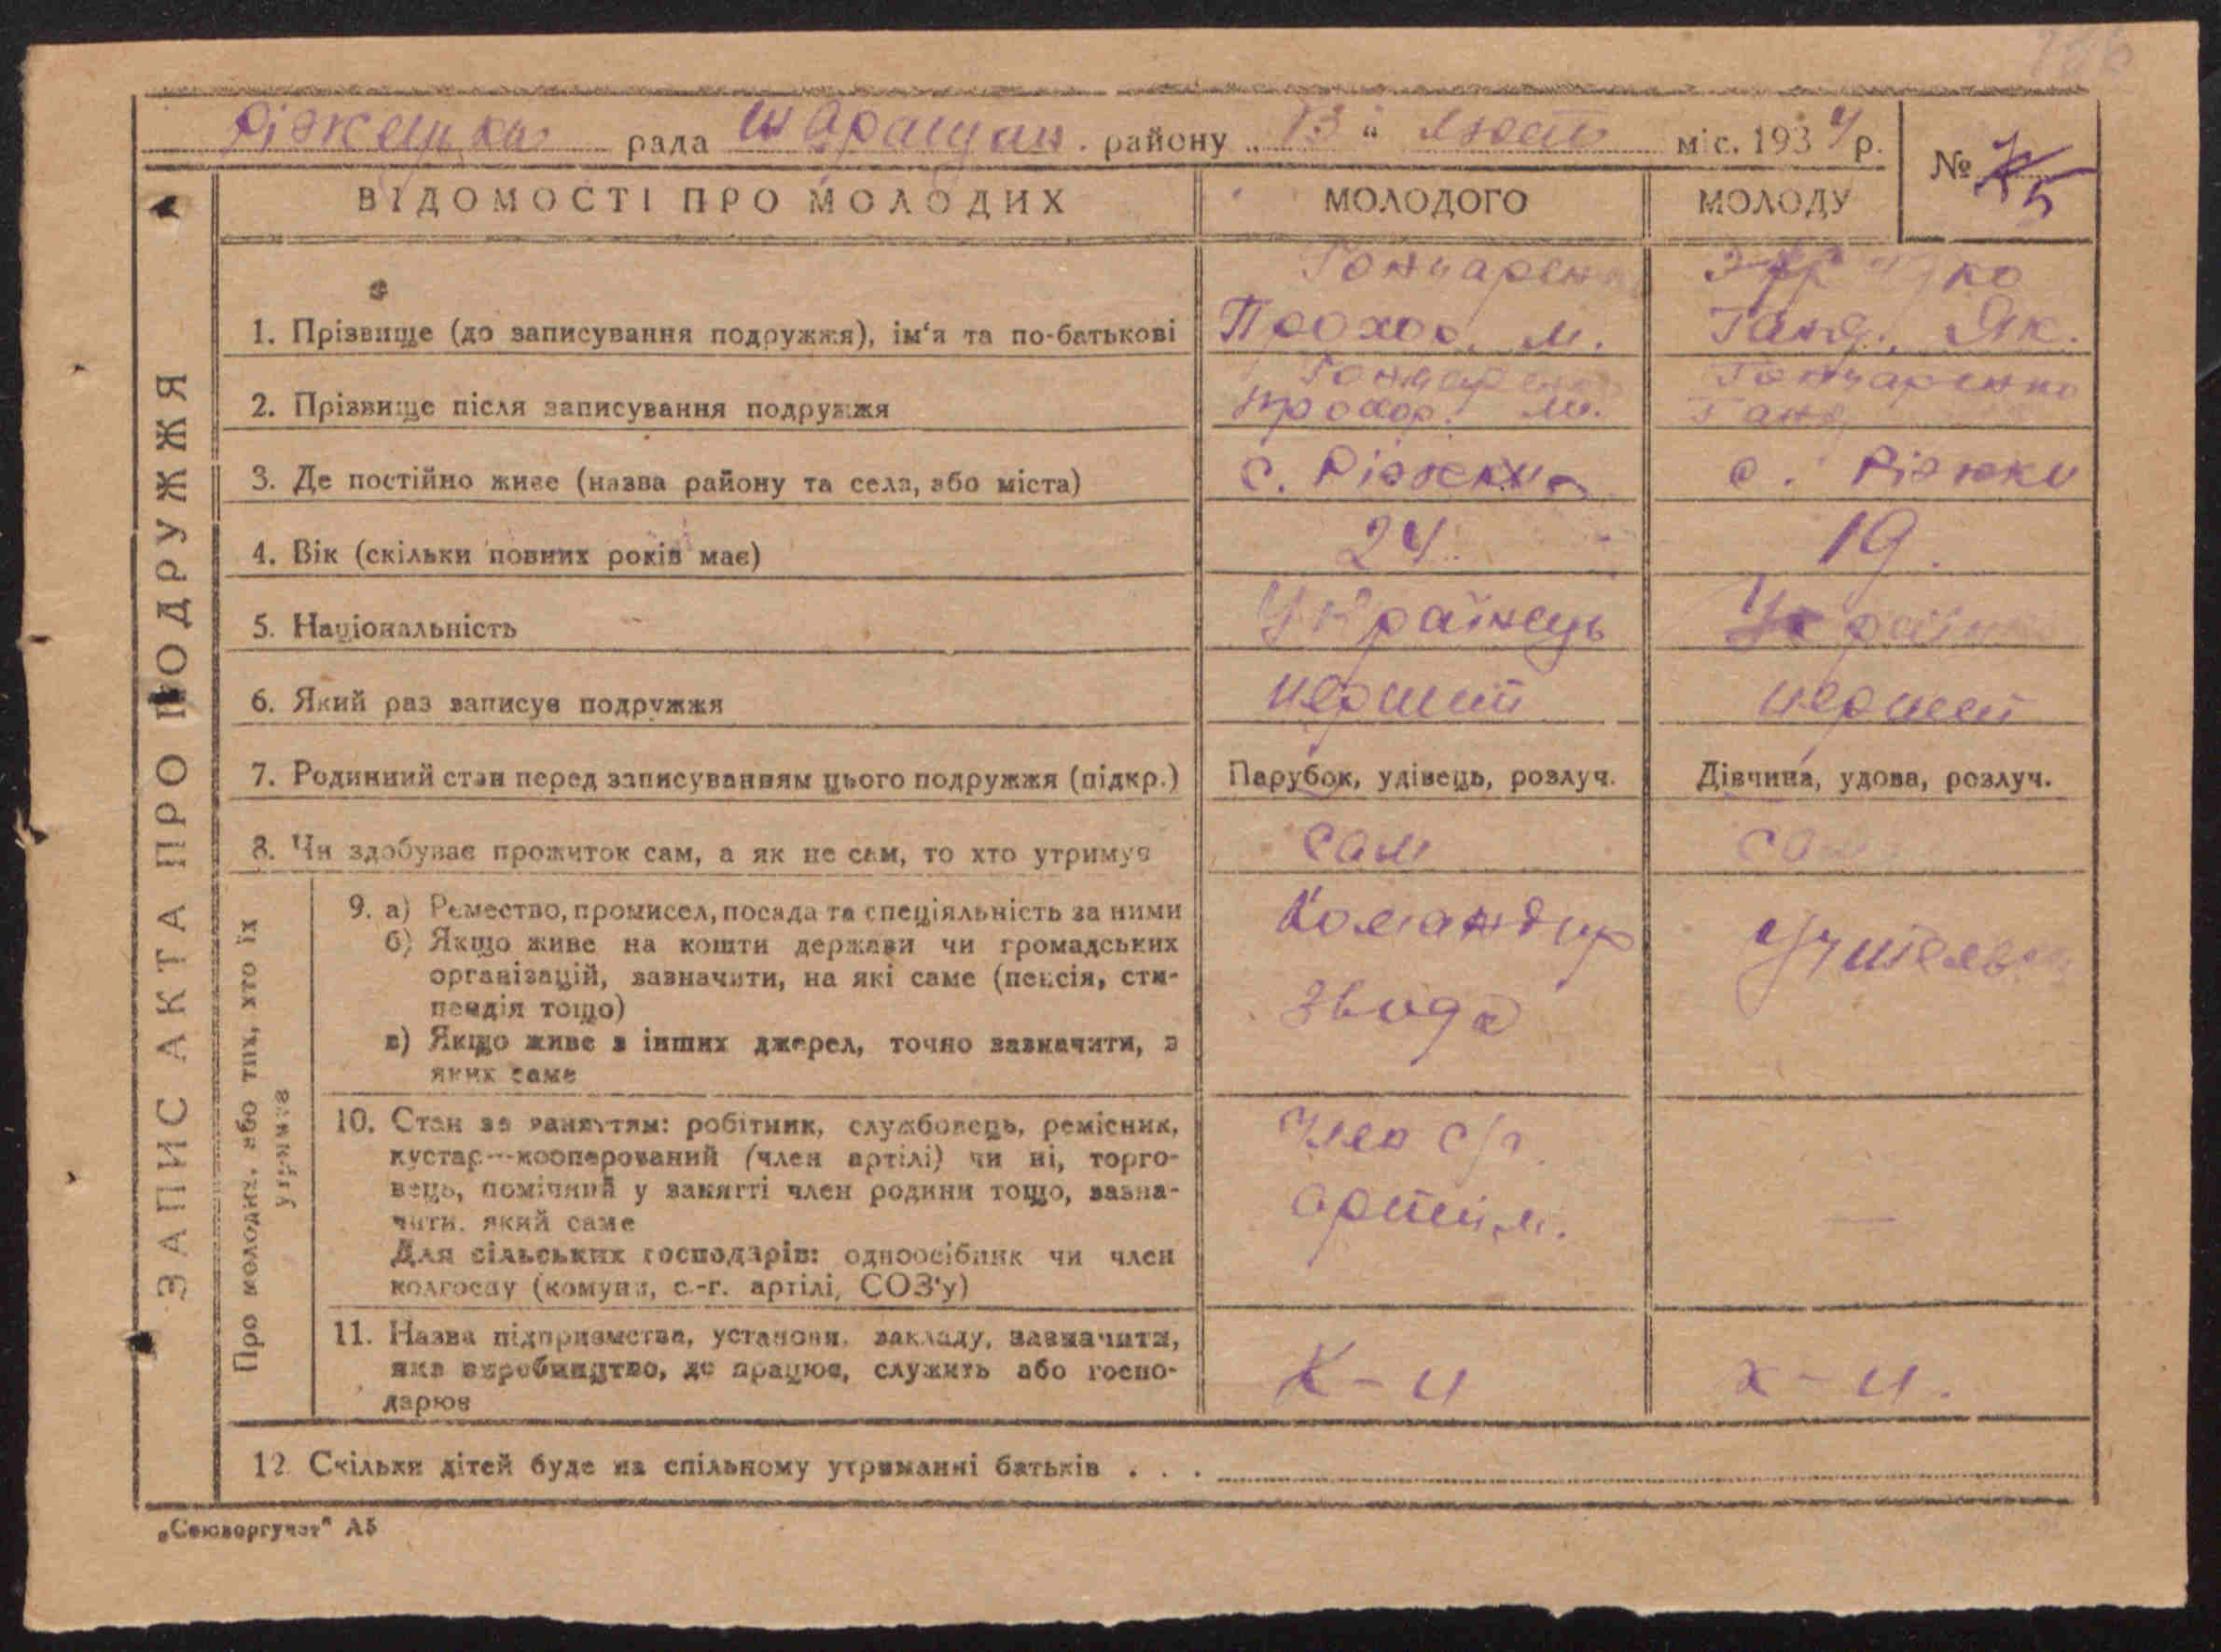 рада района „ 13 “ міс. 1934 р.
№ 5
ВІДОМОСТІ ПРО МОЛОДИХ
МОЛОДОГО
МОЛОДУ
ЗАПИС АКТА ПРО ПОДРУЖЖЯ
1. Прізвище (до записування подружжя), ім‘я та по-батькові
Гончарен
Прохор. М.
Ганя. Як.
2. Прізвище після записування подружжя
Гончаренко
Прохор. М.
Гончаренко
Ганя
3. Де постійно живе (назва району та села, або міста)
с. Ріжки
с. Ріжки
4. Вік (скільки повних років має)
24
19.
5. Національність
Українець
Українк
6. Який раз записує подружжя
перший
перший
7. Родинний стан перед записуванням цього подружжя (підкр.)
Парубок, удівець, розлуч.
Дівчина, удова, розлуч.
8. Чи здобуває прожиток сам, а як не сам, то хто утримує
сам
сам
Про молодих, або тих, хто їх
утримує
9. а) Ремество, промисел, посада та спеціяльність за ними
б) Якщо живе на кошти держави чи громадських
організацій, зазначити, на які саме (пенсія, сти-
пендія тощо)
в) Якщо живе з інших джерел, точно зазначити, з
яких саме
Командир
звода
Учитель
10. Стан за заняттям: робітник, службовець, ремісник,
кустар—кооперований (член артілі) чи ні, торго-
вець, помічний у занятті член родини тощо, зазна-
чити, який саме
Для сільських господарів: одноосібник чи член
колгоспу (комуни, с.-г. артілі, СОЗ'у)
член с/г.
артіли.
—
11. Назва підприємства, установи, закладу, зазначити,
яке виробництво, де працює, служить або госпо-
дарює
к - и
х - и.
12 Скільки дітей буде на спільному утриманні батьків . . .
„Союзоргучет“ А5